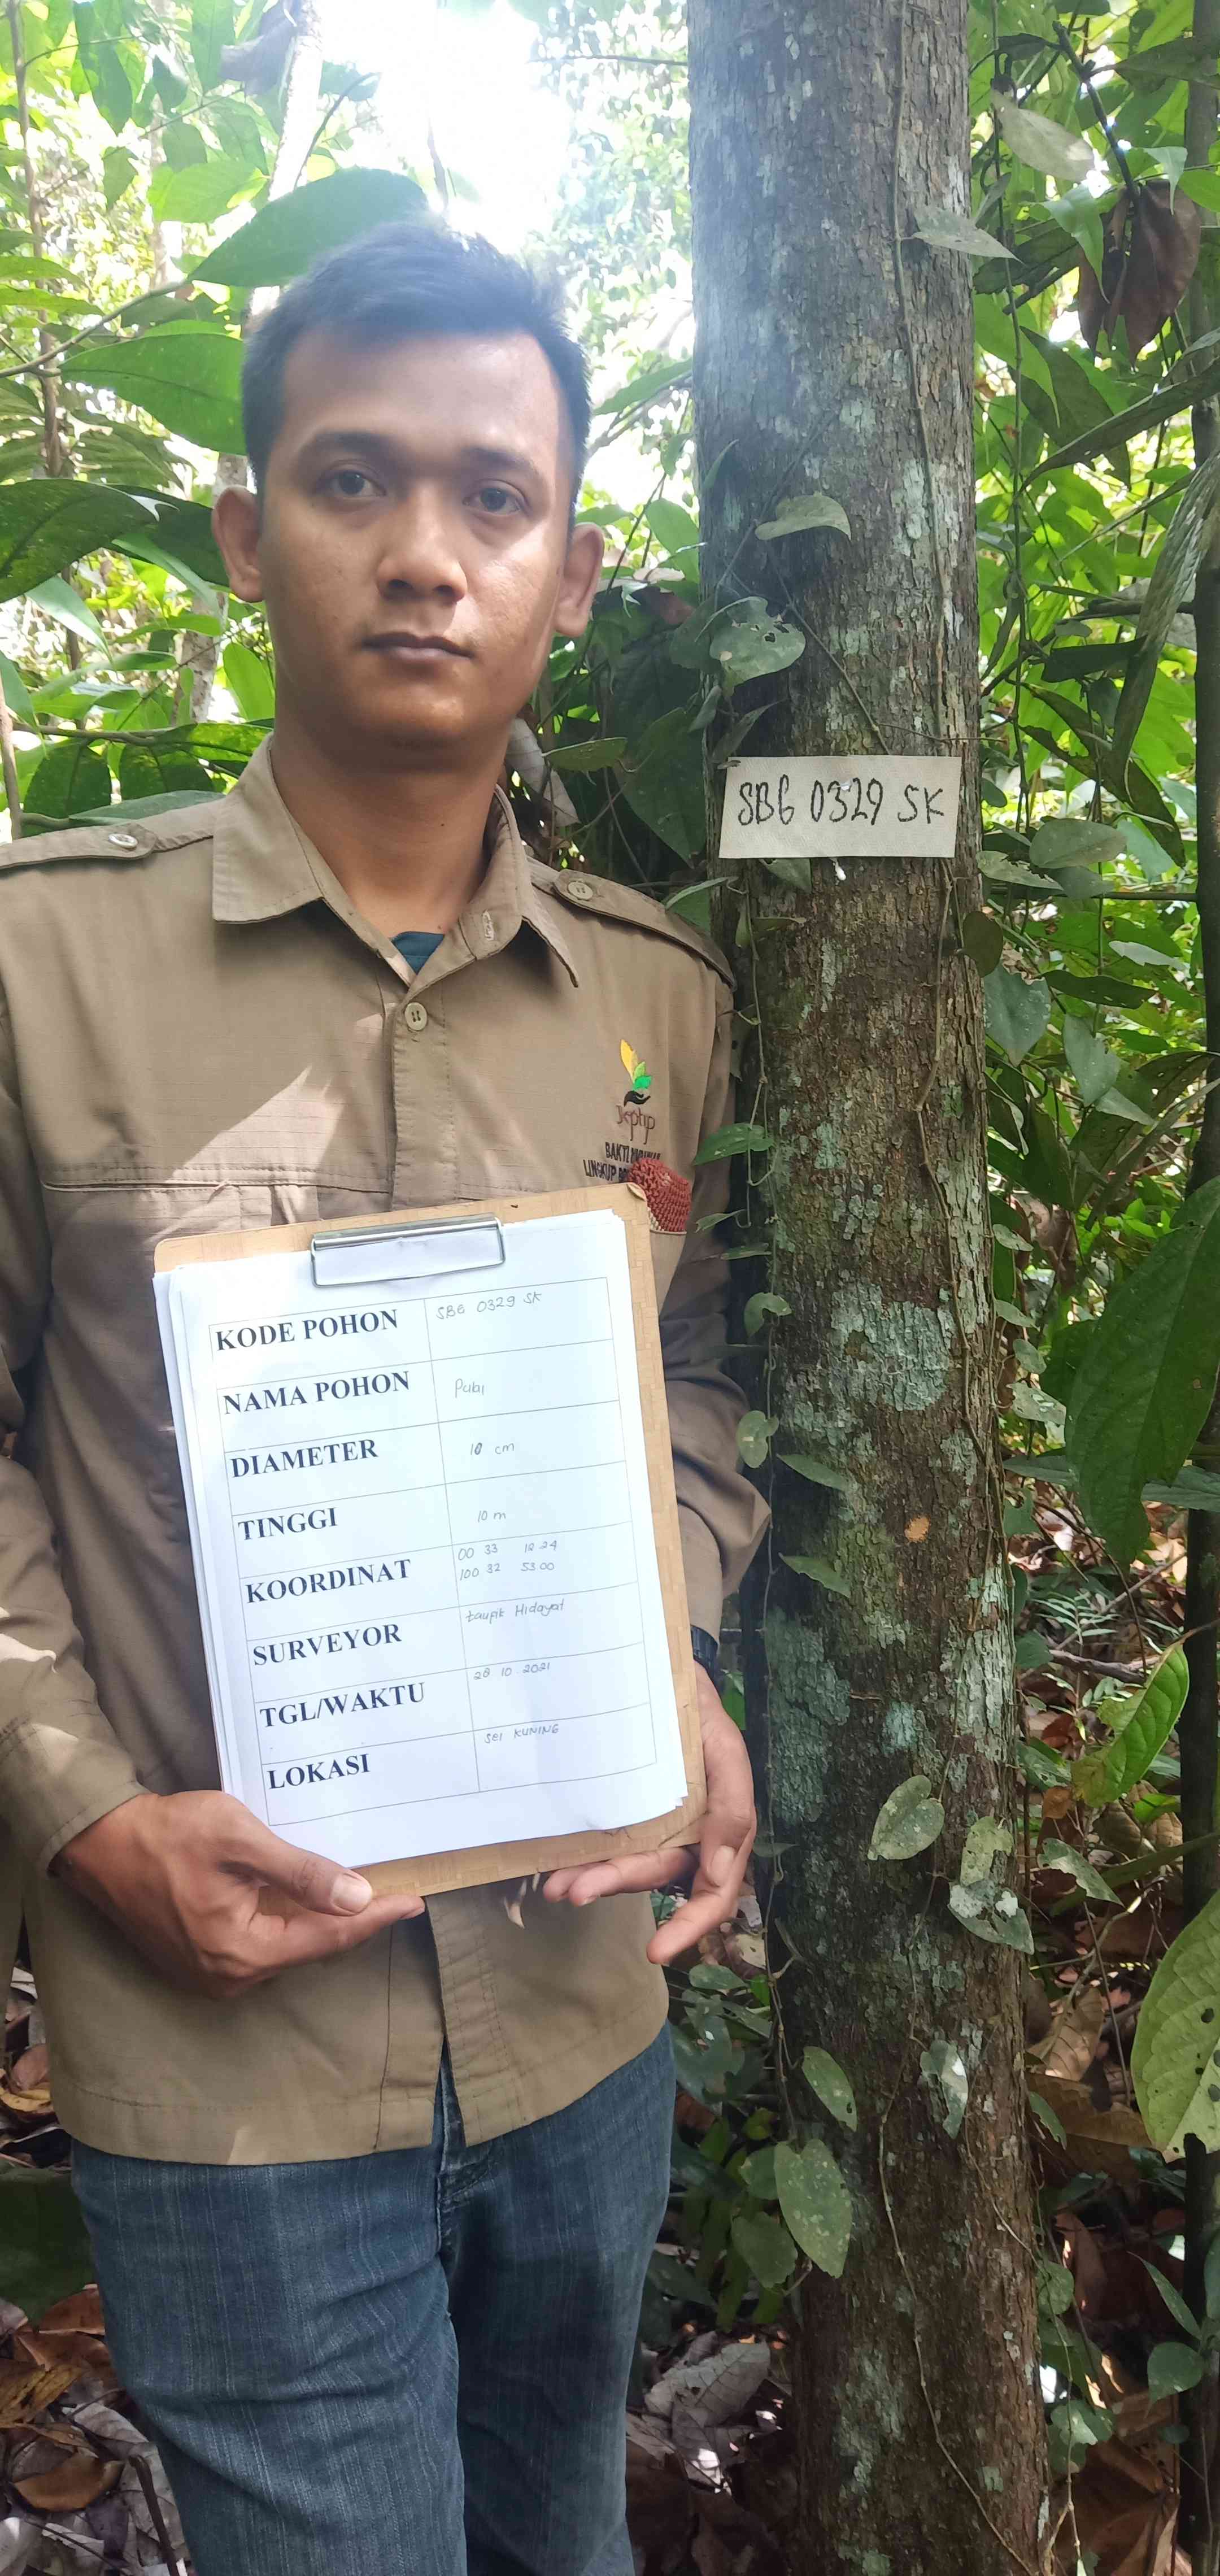 SBG 0329 SK
Jephp
KODE POHON SBG 0329 SK
NAMA POHON Pubi
DIAMETER 10 cm
TINGGI 10 m
KOORDINAT 00 33 18 24
100 32 53 00
SURVEYOR taupik Hidayat
TGL/WAKTU 28 10 2021
LOKASI SEI KUNING